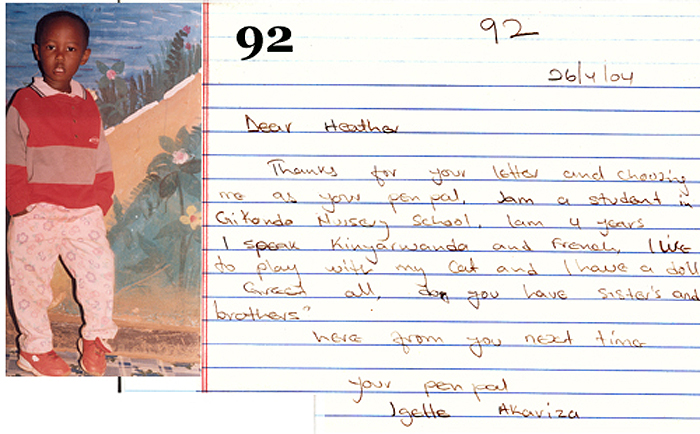 92
92
26/4/04
Dear Heather
Thanks for your letter and choosing
me as your pen pal. Iam a student in
Gikondo Nursery School. Iam 4 years
I speak Kinyarwanda and French, I like
to play with my Cat and I have a doll
Greet all, do you have sister's and
brothers"
here from you next time
your pen pal
Igette Akariza